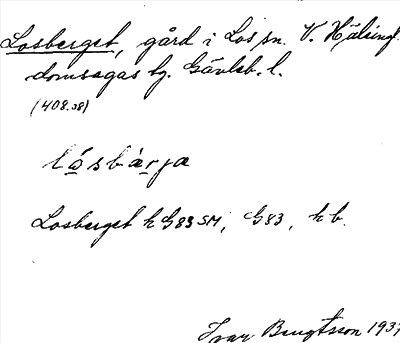 Losberget, gård i Los sn. V. Hälsingl.
domsagas tg. Gävleb. l.
(408.38)
lo̱sbäṟja
Losberget h G83 SM, G83, h b.
Ivar Bengtsson 1937